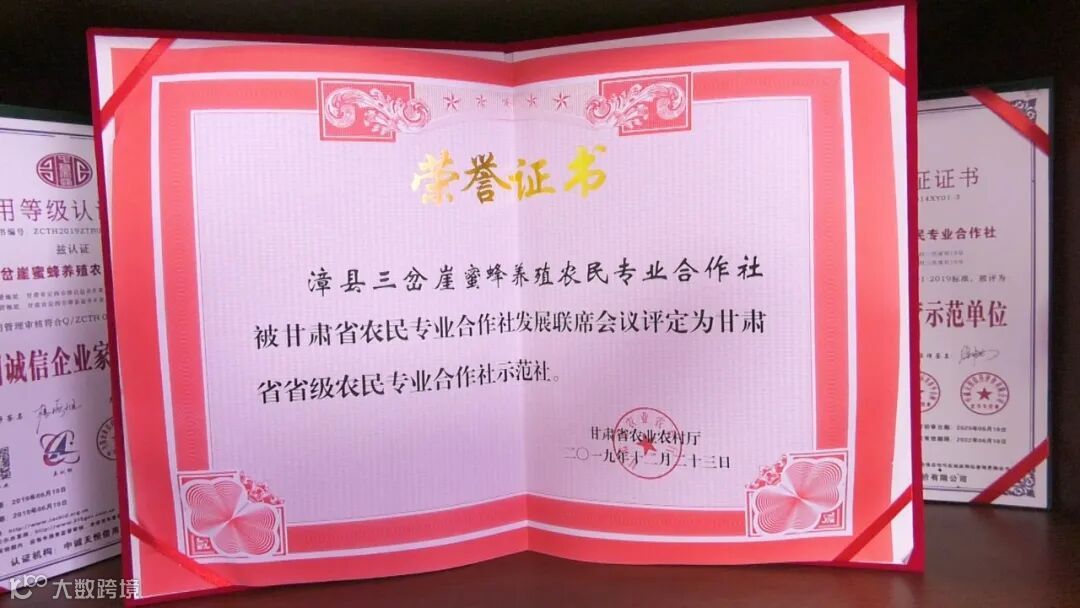 荣誉证书
漳县三岔崖蜜蜂养殖农民专业合作社
被甘肃省农民专业合作社发展联席会议评定为甘肃
省省级农民专业合作社示范社。
甘肃省农业农村厅
二〇一九年十二月二十三日
用等级认
书编号：ZCTH2019ZT
兹认证
岔崖蜜蜂养殖农
管理审核符合Q/ZCTH
诚信企业家
2019年06月19日
认证机构：中诚天恒信用
证证书
014XY01-3
民专业合作社
2019标准，被评为：
示范单位
2020年06月18日
2022年06月18日
有限公司
大数跨境